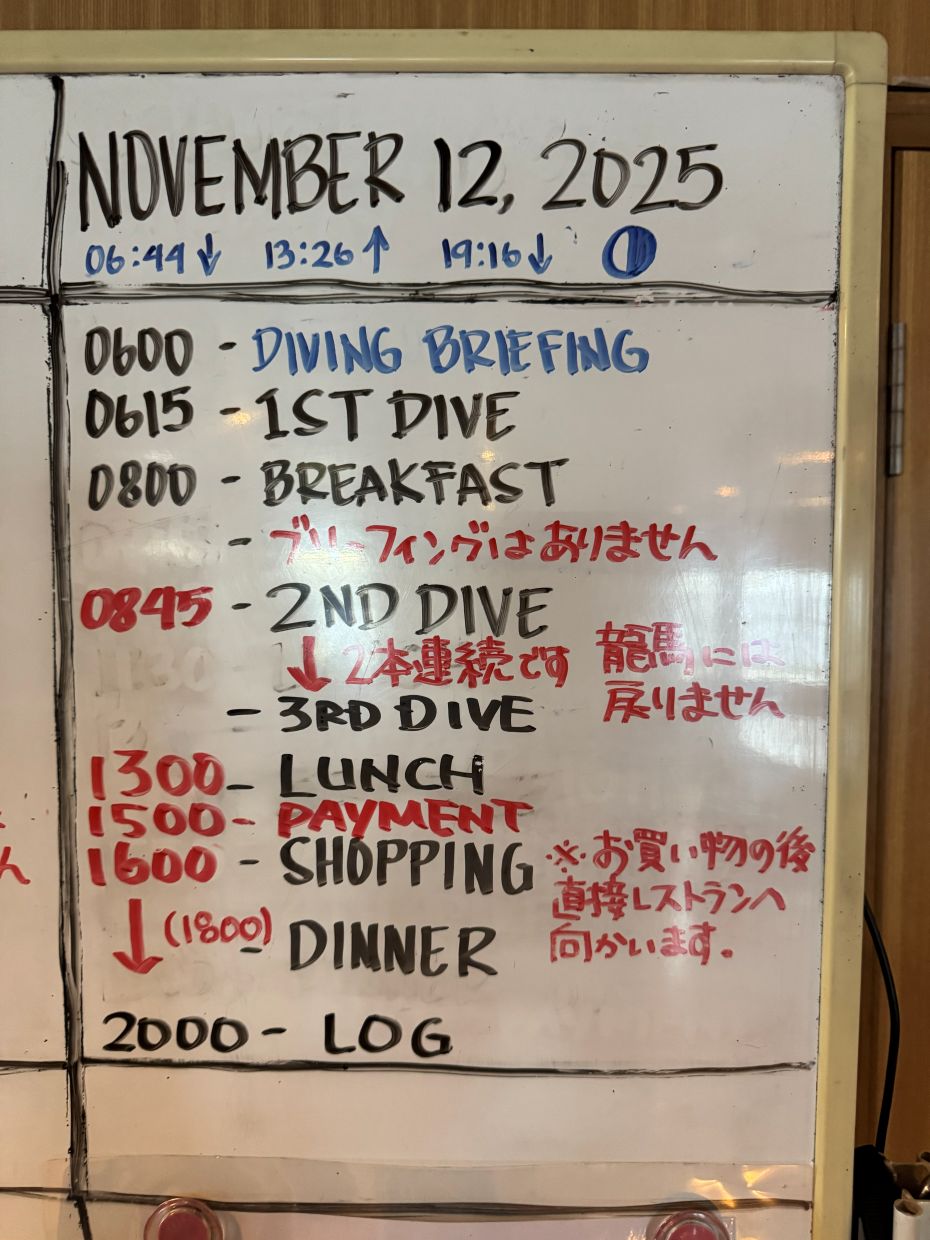 NOVEMBER 12, 2025
06:44↓ 13:26↑ 19:16↓
0600 - DIVING BRIEFING
0615 - 1ST DIVE
0800 - BREAKFAST
- ブリーフィングはありません
0845 - 2ND DIVE
↓ 2本連続です
龍馬には
戻りません
- 3RD DIVE
1300 - LUNCH
1500 - PAYMENT
1600 - SHOPPING
※お買い物の後
直接レストランへ
向かいます。
↓ (1800) - DINNER
2000 - LOG
ん